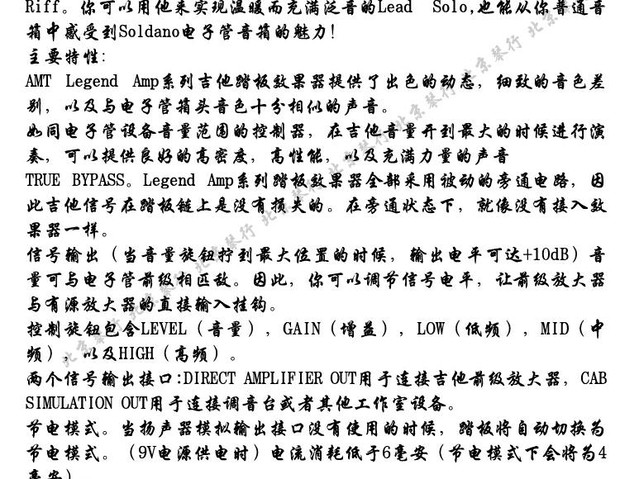 Riff。你可以用他来实现温暖而充满泛音的Lead Solo,也能从你普通音
箱中感受到Soldano电子管音箱的魅力!
主要特性:
AMT Legend Amp系列吉他踏板效果器提供了出色的动态，细致的音色差
别，以及与电子管箱头音色十分相似的声音。
如同电子管设备音量范围的控制器，在吉他音量开到最大的时候进行演
奏，可以提供良好的高密度，高性能，以及充满力量的声音
TRUE BYPASS。Legend Amp系列踏板效果器全部采用被动的旁通电路，因
此吉他信号在踏板链上是没有损失的。在旁通状态下，就像没有接入效
果器一样。
信号输出（当音量旋钮拧到最大位置的时候，输出电平可达+10dB）音
量可与电子管前级相匹敌。因此，你可以调节信号电平，让前级放大器
与有源放大器的直接输入挂钩。
控制旋钮包含LEVEL（音量），GAIN（增益），LOW（低频），MID（中
频），以及HIGH（高频）。
两个信号输出接口:DIRECT AMPLIFIER OUT用于连接吉他前级放大器，CAB
SIMULATION OUT用于连接调音台或者其他工作室设备。
节电模式。当扬声器模拟输出接口没有使用的时候，踏板将自动切换为
节电模式。（9V电源供电时）电流消耗低于6毫安（节电模式下会将为4
毫安）
北京琴行 北京琴行 北京琴行 北京琴行 北京琴行 北京